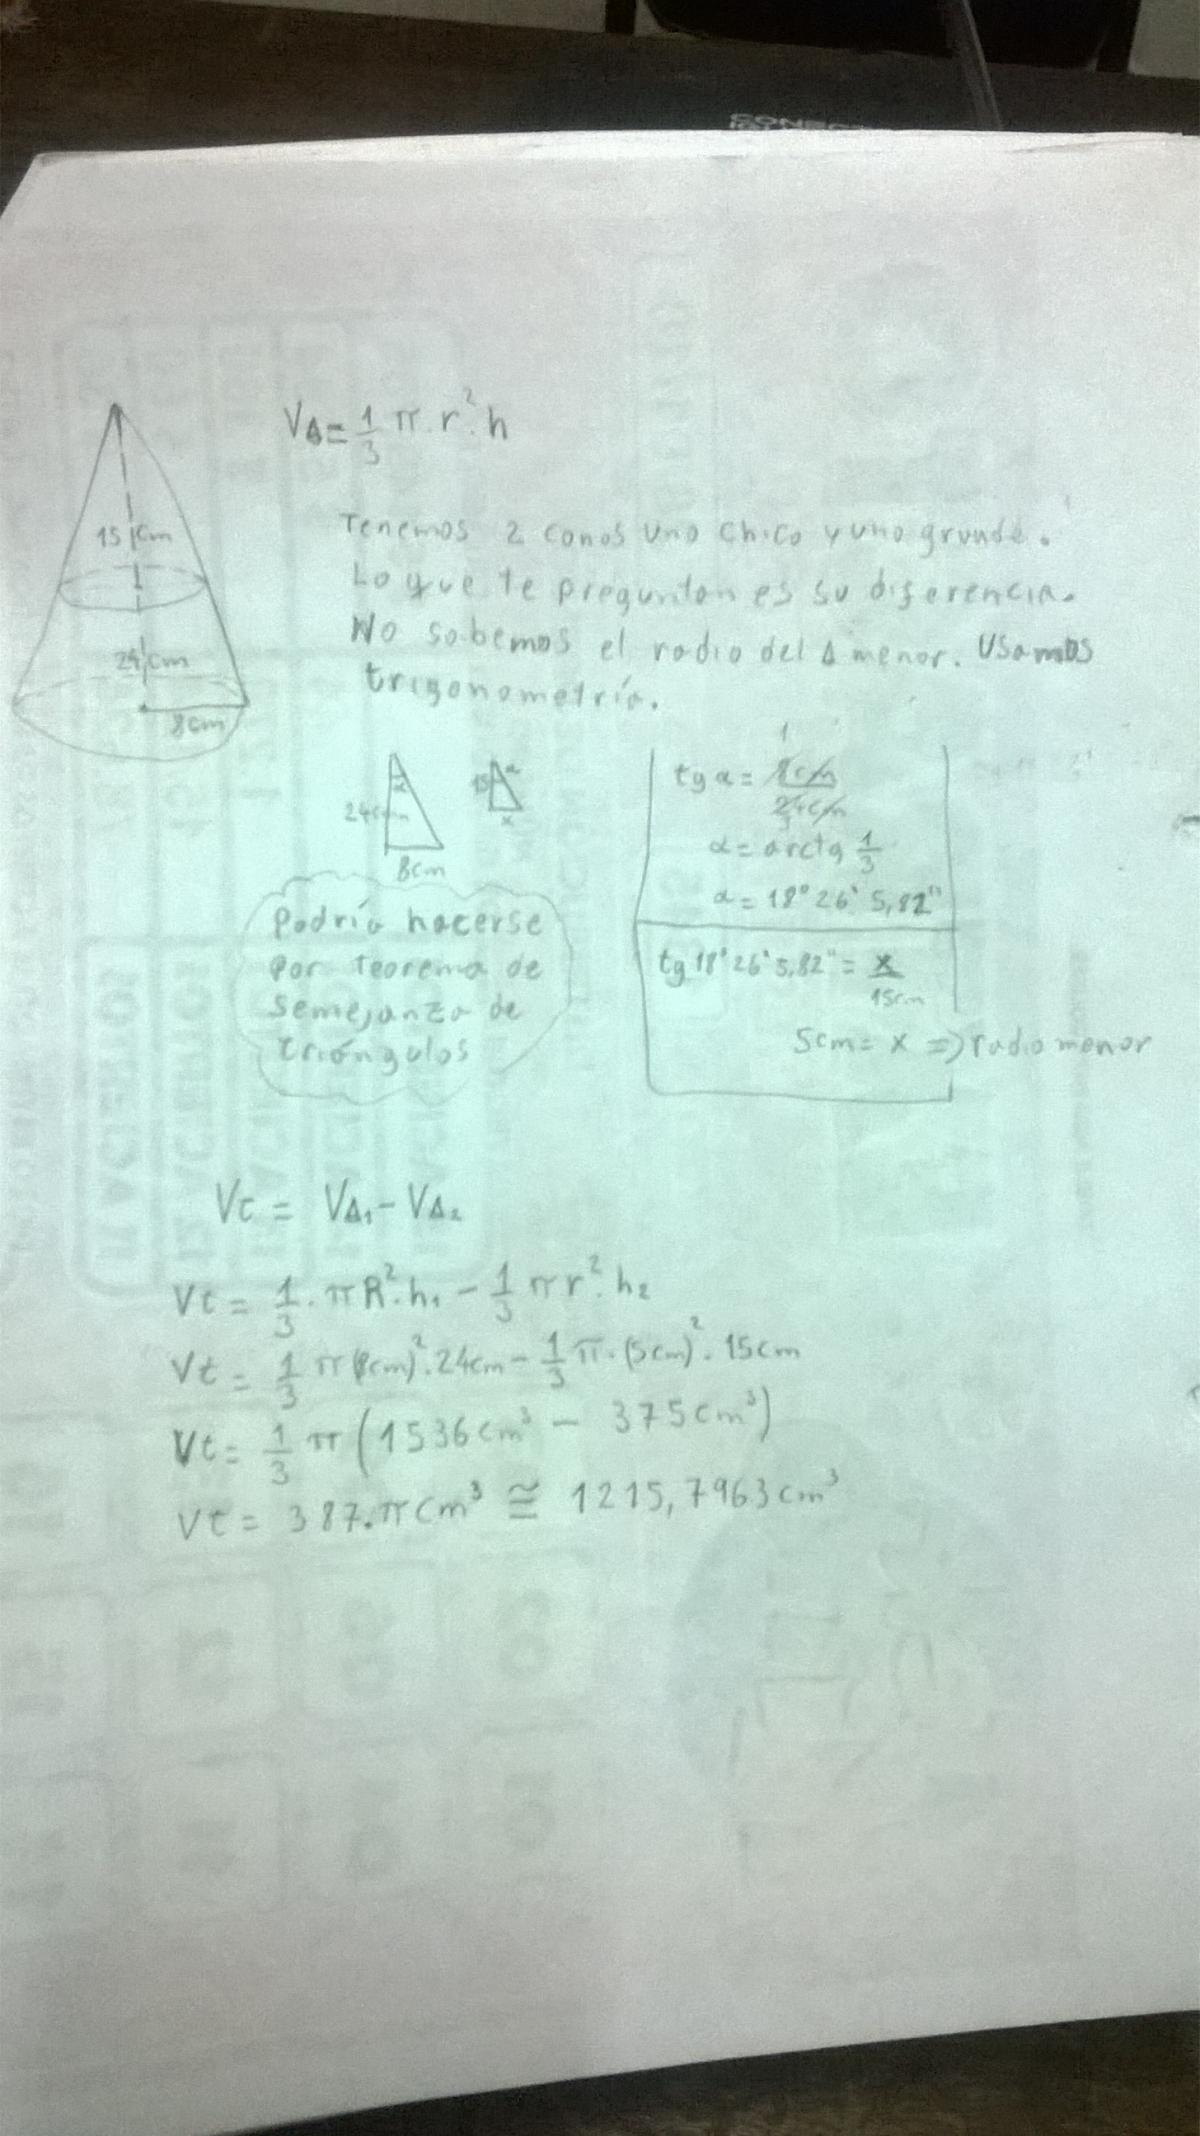 V△ = 1/3 π.r².h
15 cm
24 cm
8cm
Tenemos 2 conos uno chico y uno grande.
Lo que te preguntan es su diferencia.
No sabemos el radio del △ menor. Usamos
trigonometría.
24cm
α
8cm
15
α
x
tg α = 8cm/24cm
1
3
α = arctg 1/3
α = 18° 26' 5,82"
tg 18° 26' 5,82" = x/15cm
5cm = x => radio menor
Podría hacerse
por teorema de
semejanza de
triángulos
Vt = V△₁ - V△₂
Vt = 1/3 . π R².h₁ - 1/3 π r².h₂
Vt = 1/3 π (8cm)².24cm - 1/3 π.(5cm)².15cm
Vt = 1/3 π (1536cm³ - 375cm³)
Vt = 387.π cm³ ≅ 1215,7963cm³